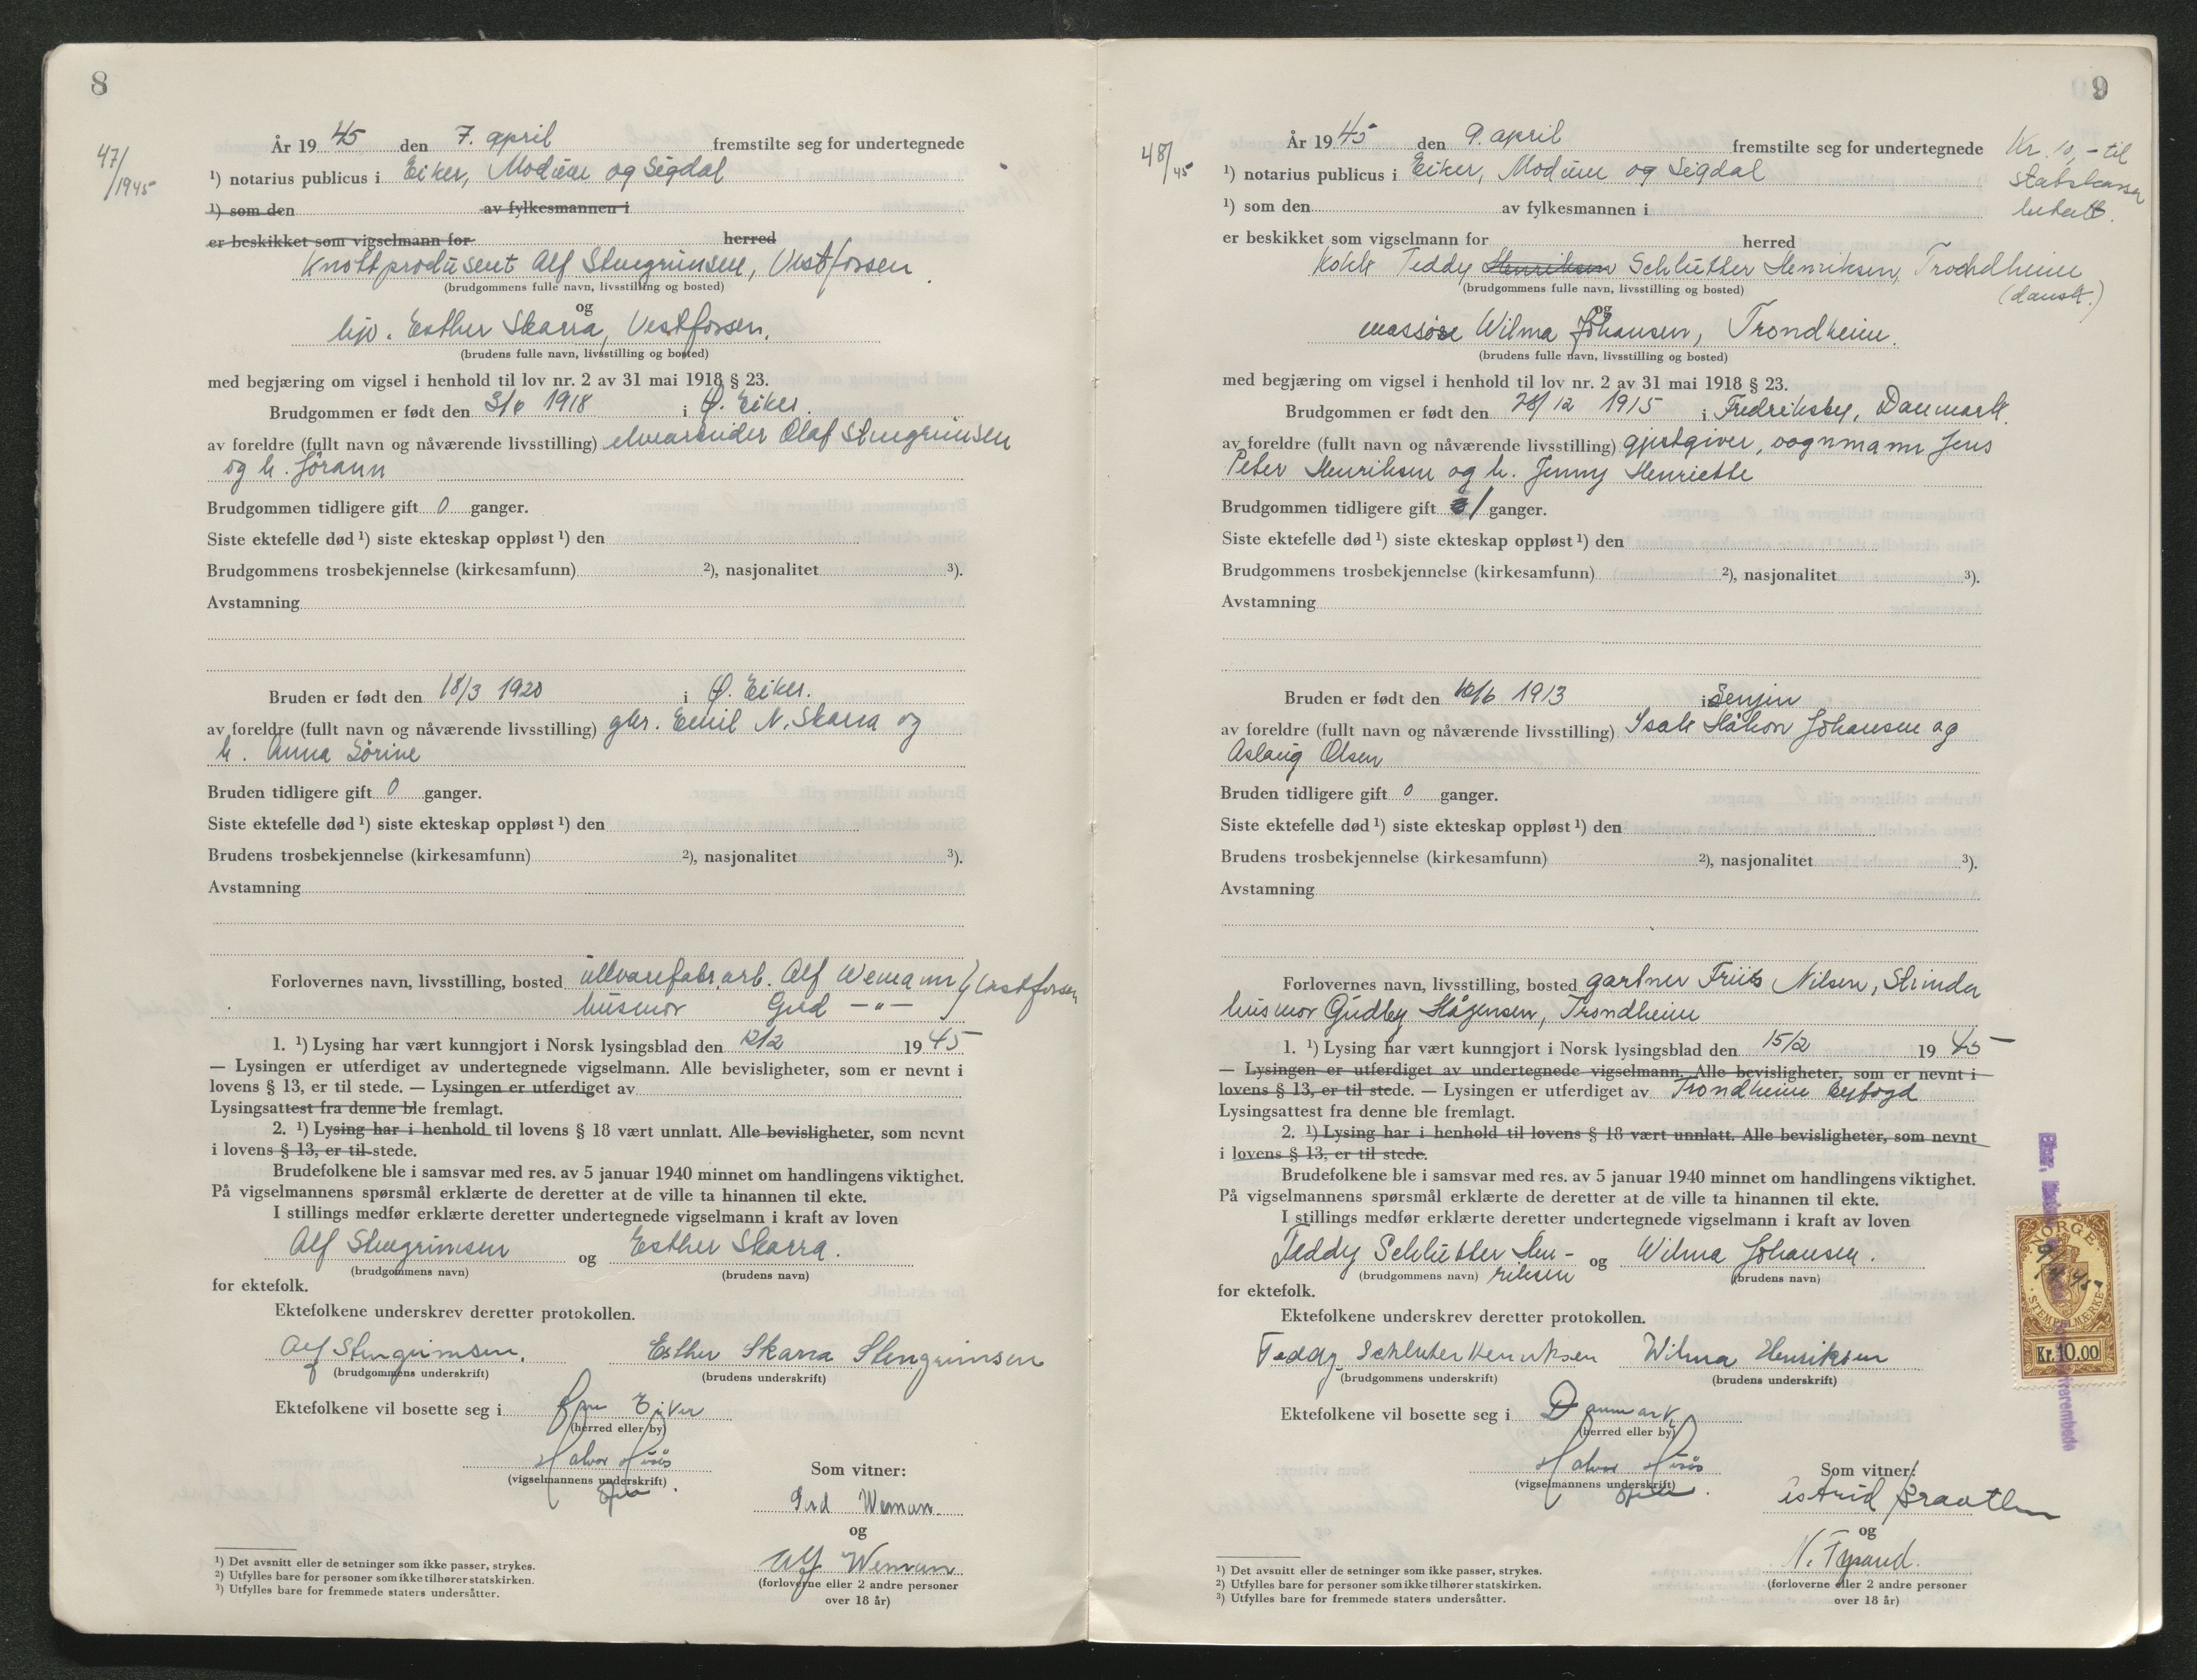 8
47/1945
År 1945 den 7. april fremstilte seg for undertegnede
¹) notarius publicus i Eiker, Modum og Sigdal
¹) som den av fylkesmannen i
er beskikket som vigselmann for herred
Knottprodusent Alf Stengrimsen, Vestfossen.
(brudgommens fulle navn, livsstilling og bosted)
og
hjv. Esther Skarra, Vestfossen.
(brudens fulle navn, livsstilling og bosted)
med begjæring om vigsel i henhold til lov nr. 2 av 31 mai 1918 § 23.
Brudgommen er født den 3/6 1918 i Ø. Eiker.
av foreldre (fullt navn og nåværende livsstilling) elvearbeider Olaf Stengrimsen
og h. Jörann
Brudgommen tidligere gift 0 ganger.
Siste ektefelle død ¹) siste ekteskap oppløst ¹) den
Brudgommens trosbekjennelse (kirkesamfunn) ²), nasjonalitet ³).
Avstamning
Bruden er født den 18/3 1920 i Ø. Eiker.
av foreldre (fullt navn og nåværende livsstilling) gbr. Emil N. Skarra og
h. Anna Sörine
Bruden tidligere gift 0 ganger.
Siste ektefelle død ¹) siste ekteskap oppløst ¹) den
Brudens trosbekjennelse (kirkesamfunn) ²), nasjonalitet ³).
Avstamning
Forlovernes navn, livsstilling, bosted ullvarefabr.arb. Alf Wemann } Vestfossen
husmor Gud —"—
1. ¹) Lysing har vært kunngjort i Norsk lysingsblad den 12/2 1945
— Lysingen er utferdiget av undertegnede vigselmann. Alle bevisligheter, som er nevnt i
lovens § 13, er til stede. — Lysingen er utferdiget av
Lysingsattest fra denne ble fremlagt.
2. ¹) Lysing har i henhold til lovens § 18 vært unnlatt. Alle bevisligheter, som nevnt
i lovens § 13, er til stede.
Brudefolkene ble i samsvar med res. av 5 januar 1940 minnet om handlingens viktighet.
På vigselmannens spørsmål erklærte de deretter at de ville ta hinannen til ekte.
I stillings medfør erklærte deretter undertegnede vigselmann i kraft av loven
Alf Stengrimsen og Esther Skarra.
(brudgommens navn) (brudens navn)
for ektefolk.
Ektefolkene underskrev deretter protokollen.
Alf Stengrimsen. Esther Skarra Stengrimsen
(brudgommens underskrift) (brudens underskrift)
Ektefolkene vil bosette seg i Eiker
(herred eller by)
Halvor
(vigselmannens underskrift)
Som vitner:
Weman.
og
Alf Weman
(forloverne eller 2 andre personer
over 18 år)
¹) Det avsnitt eller de setninger som ikke passer, strykes.
²) Utfylles bare for personer som ikke tilhører statskirken.
³) Utfylles bare for fremmede staters undersåtter.
9
48/45
Kr. 10,- til
statskassen
betalt.
År 1945 den 9. april fremstilte seg for undertegnede
¹) notarius publicus i Eiker, Modum og Sigdal
¹) som den av fylkesmannen i
er beskikket som vigselmann for herred
Kokk Teddy Henriksen Schlütter Henriksen, Trondheim
(dansk.)
(brudgommens fulle navn, livsstilling og bosted)
og
massøse Wilma Johansen, Trondheim.
(brudens fulle navn, livsstilling og bosted)
med begjæring om vigsel i henhold til lov nr. 2 av 31 mai 1918 § 23.
Brudgommen er født den 28/12 1915 i Fredriksby, Danmark.
av foreldre (fullt navn og nåværende livsstilling) gjestgiver, vognmann Jens
Peter Henriksen og h. Jenny Henriette
Brudgommen tidligere gift 1 ganger.
Siste ektefelle død ¹) siste ekteskap oppløst ¹) den
Brudgommens trosbekjennelse (kirkesamfunn) ²), nasjonalitet ³).
Avstamning
Bruden er født den 10/6 1913 i Senjen
av foreldre (fullt navn og nåværende livsstilling) Isak Håkon Johansen og
Aslaug Olsen
Bruden tidligere gift 0 ganger.
Siste ektefelle død ¹) siste ekteskap oppløst ¹) den
Brudens trosbekjennelse (kirkesamfunn) ²), nasjonalitet ³).
Avstamning
Forlovernes navn, livsstilling, bosted gartner Friis Nilsen, Strinda
husmor Gudley Hågensen, Trondheim
1. ¹) Lysing har vært kunngjort i Norsk lysingsblad den 15/2 1945
— Lysingen er utferdiget av undertegnede vigselmann. Alle bevisligheter, som er nevnt i
lovens § 13, er til stede. — Lysingen er utferdiget av Trondheim byfogd
Lysingsattest fra denne ble fremlagt.
2. ¹) Lysing har i henhold til lovens § 18 vært unnlatt. Alle bevisligheter, som nevnt
i lovens § 13, er til stede.
Brudefolkene ble i samsvar med res. av 5 januar 1940 minnet om handlingens viktighet.
På vigselmannens spørsmål erklærte de deretter at de ville ta hinannen til ekte.
I stillings medfør erklærte deretter undertegnede vigselmann i kraft av loven
Teddy Schlütter Hen- og Wilma Johansen.
(brudgommens navn) riksen (brudens navn)
for ektefolk.
Ektefolkene underskrev deretter protokollen.
Teddy Schluter Henriksen Wilma Henriksen
(brudgommens underskrift) (brudens underskrift)
Ektefolkene vil bosette seg i Danmark
(herred eller by)
Halvor
(vigselmannens underskrift)
Som vitner:
Astrid Braathen
og
(forloverne eller 2 andre personer
over 18 år)
¹) Det avsnitt eller de setninger som ikke passer, strykes.
²) Utfylles bare for personer som ikke tilhører statskirken.
³) Utfylles bare for fremmede staters undersåtter.
NORGE
9/4 45
STEMPELMÆRKE
Kr. 10.00